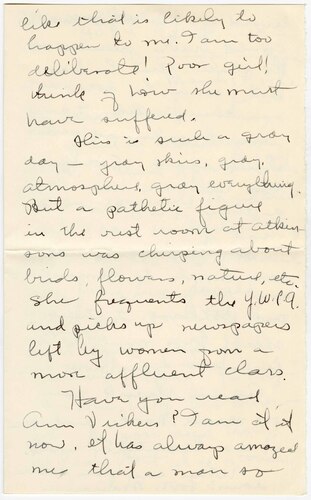 like that is likely to
happen to me. I am too
deliberate! Poor girl!
think of how she must
have suffered.
This is such a gray
day — gray skies, gray
atmosphere, gray everything.
But a pathetic figure
in the rest room at Atkin-
sons was chirping about
birds, flowers, nature, etc.
She frequents the Y.W.C.A.
and picks up newspapers
left by women from a
more affluent class.
Have you read
Ann Vickers? I am at it
now. It has always amazed
me that a man so